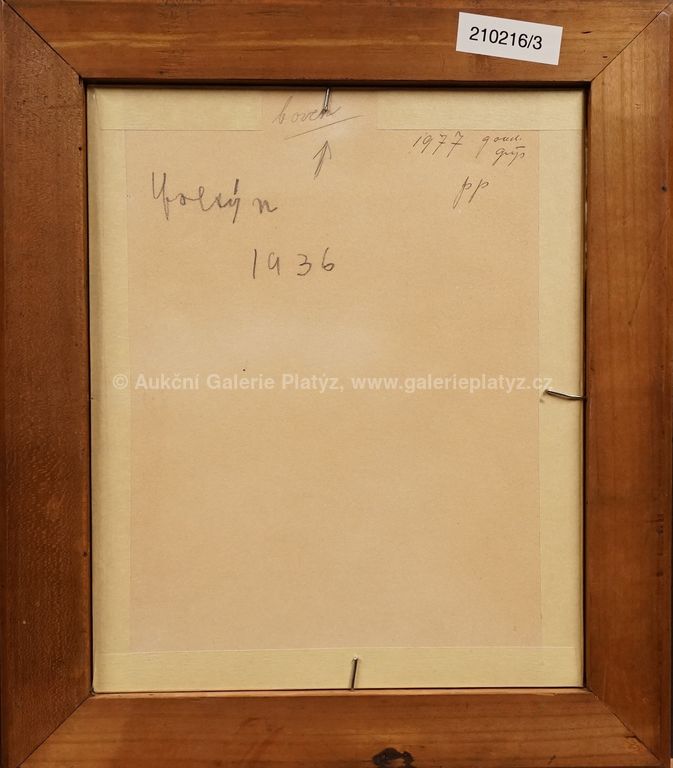 210216/3
boven
1977 goud.
grijs
pp
1936
© Aukční Galerie Platýz, www.galerieplatyz.cz